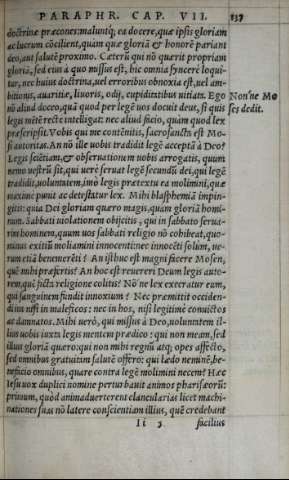 PARAPHR. CAP. VII. 137
doctrinæ præcones: maluntq; ea docere, quæ ipsis gloriam
ac lucrum cōcilient, quàm quæ gloriā & honorē pariant
deo, aut salutē proximo. Cæterū qui nō quærit propriam
gloriā, sed eius à quo missus est, hic omnia syncere loqui-
tur, nec huius doctrina, uel erroribus obnoxia est, uel am-
bitionis, auaritiæ, liuoris, odij, cupiditatibus uitiata. Ego
nō aliud doceo, quā quod per legē uos docuit deus, si quis
legis mētē rectè intelligat: nec aliud facio, quàm quod lex
præscripsit. Vobis qui me contēnitis, sacrosancta est Mo-
si autoritas. An nō ille uobis tradidit legē acceptā à Deo?
Legis sciētiam, & obseruationem uobis arrogatis, quum
nemo uestrū sit, qui uere seruat legē secundū dei, qui legē
tradidit, uoluntatem, imò legis prætextu ea molimini, quæ
maximè punit ac detestatur lex. Mihi blasphemiā impin-
gitis: quia Dei gloriam quæro magis, quàm gloriā homi-
num. Sabbati uiolationem obijcitis, qui in sabbato serua-
rim hominem, quum uos sabbati religio nō cohibeat, quo-
minus exitiū moliamini innocenti: nec innocēti solùm, ue-
rum etiā benemerēti? An isthuc est magni facere Mosen,
quē mihi præfertis? An hoc est reuereri Deum legis auto-
rem, quē ficta religione colitis? Nō'ne lex execratur eum,
qui sanguinem fundit innoxium? Nec præmittit occiden-
di ius nisi in maleficos: nec in hos, nisi legitimè conuictos
ac damnatos. Mihi uerò, qui missus à Deo, uoluntatem il-
lius uobis iuxta legis mentem prædico: qui non meam, sed
illius gloriā quæro: qui non mihi regnū atq; opes affecto,
sed omnibus gratuitam salutē offero: qui lædo neminē, be-
neficio omnibus, quare contra legē molimini necem? Hæc
Iesu uox duplici nomine perturbauit animos pharisæorū:
primum, quòd animaduerterent clancularias licet machi-
nationes suas nō latere conscientiam illius, quē credebant
Ii 3 facilius
Non'ne Mo
ses dedit.